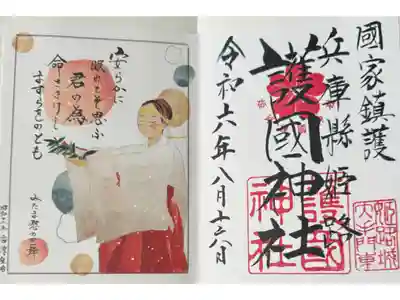 國家鎮護
兵庫縣姫路
護國神社
令和六年八月十三日
護國神社
姫路城
大手門東
安らかに
眠れとぞ思ふ
君の為
命ささげし
ますらをのとも
みたま慰の舞